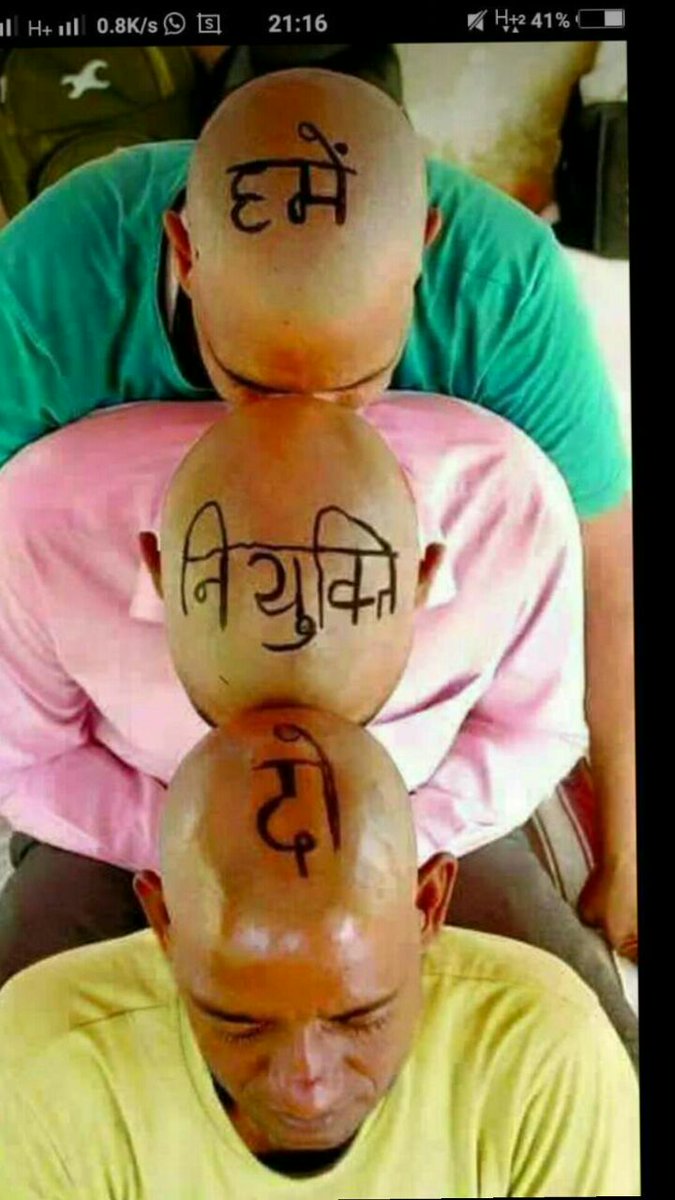 H+ 0.8K/s S 21:16 H+2 41%
हमें
नियुक्ति
दो